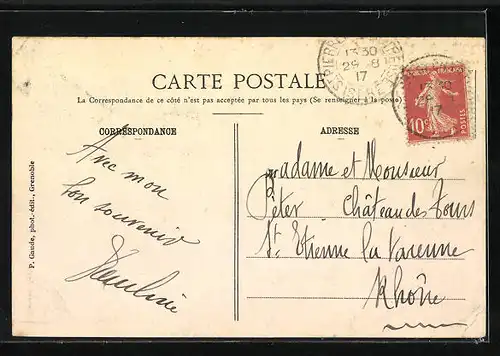 13 30
29 - 8
17
ISERE
CARTE POSTALE
La Correspondance de ce côté n'est pas acceptée par tous les pays (Se renseigner à la poste)
CORRESPONDANCE
ADRESSE
REPUBLIQUE FRANÇAISE
10c
POSTES
Avec mon
bon souvenir
Pauline
Madame et Monsieur
Péter Château des Tours
St. Etienne la Varenne
Rhône
P. Gaude, phot. édit., Grenoble